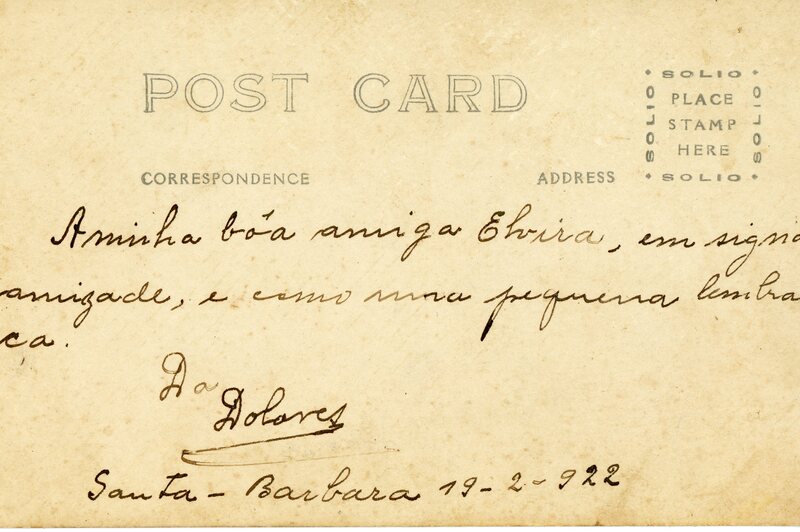 POST CARD
SOLIO
SOLIO PLACE SOLIO
STAMP
HERE
SOLIO
CORRESPONDENCE ADDRESS
A minha bôa amiga Elvira, em signa
amizade, e como uma pequena lembra
ça.
Da
Dolores
Santa - Barbara 19-2-922